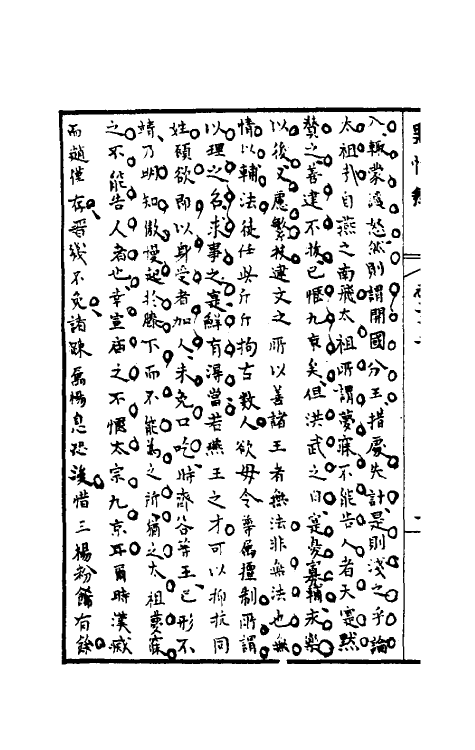 入輒蒙渥怒然則謂開國分王措處失計是則淺之乎論
太祖	自燕之南飛太祖所謂夢寐不能告人者天寔默
贊之善建不拔已慨九京矣但洪武之日寔憂寡輔求樂
以後又慮繁枝建文之所以善諸王者無法非無法也無
情以輔法徒仕此斤斤拘古數人欲毋令尊屬擅制所謂
以理之名求事之寔鮮有得當若燕王之才可以抑抗同
姓頎欲即以身受者加人未免口吃時齊谷等王已形不
靖乃明知傲慢起於膝下而不能為之所猶之太祖夢寐
之不能告人者也幸宣廟之不愧太宗九京耳爾時漢威
而趙僅存晉幾不免諸疎屬惕息恐後惜三楊粉飾有餘